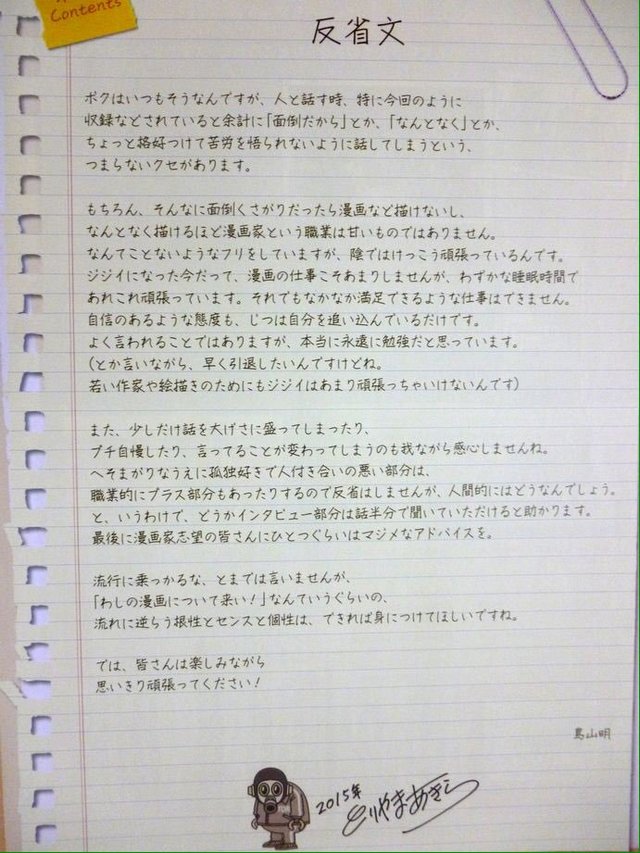 Contents
反省文
ボクはいつもそうなんですが、人と話す時、特に今回のように
収録などされていると余計に「面倒だから」とか、「なんとなく」とか、
ちょっと格好つけて苦労を悟られないように話してしまうという、
つまらないクセがあります。
もちろん、そんなに面倒くさがりだったら漫画など描けないし、
なんとなく描けるほど漫画家という職業は甘いものではありません。
なんてことないようなフリをしていますが、陰ではけっこう頑張っているんです。
ジジイになった今だって、漫画の仕事こそあまりしませんが、わずかな睡眠時間で
あれこれ頑張っています。それでもなかなか満足できるような仕事はできません。
自信のあるような態度も、じつは自分を追い込んでいるだけです。
よく言われることではありますが、本当に永遠に勉強だと思っています。
(とか言いながら、早く引退したいんですけどね。
若い作家や絵描きのためにもジジイはあまり頑張っちゃいけないんです)
また、少しだけ話を大げさに盛ってしまったり、
プチ自慢したり、言ってることが変わってしまうのも我ながら感心しませんね。
へそまがりなうえに孤独好きで人付き合いの悪い部分は、
職業的にプラス部分もあったりするので反省はしませんが、人間的にはどうなんでしょう。
と、いうわけで、どうかインタビュー部分は話半分で聞いていただけると助かります。
最後に漫画家志望の皆さんにひとつぐらいはマジメなアドバイスを。
流行に乗っかるな、とまでは言いませんが、
「わしの漫画について来い!」なんていうぐらいの、
流れに逆らう根性とセンスと個性は、できれば身につけてほしいですね。
では、皆さんは楽しみながら
思いきり頑張ってください!
鳥山明
2015年 とりやまあきら